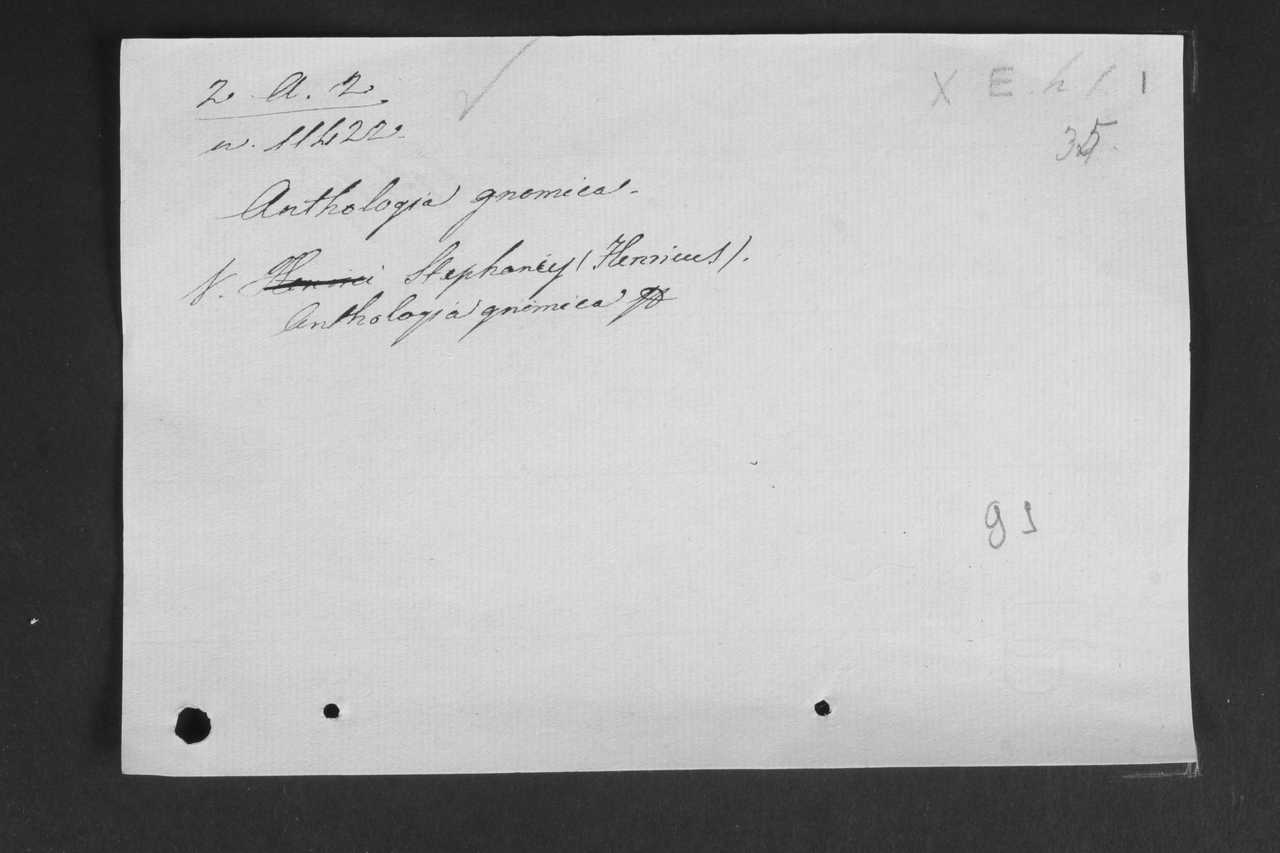 2. A. 2
X E. h 1. 1
n. 11422.
35.
Anthologia gnomica.
V. Henrici Stephanus (Henricus).
Anthologia gnomica
91